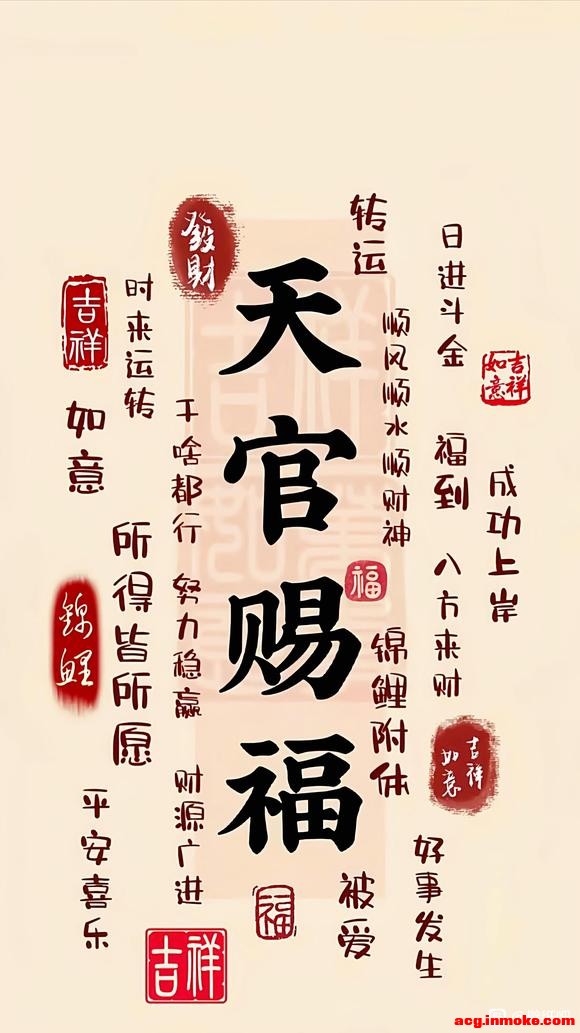 天官赐福
發财
转运
日进斗金
吉祥
时来运转
顺风顺水顺财神
吉祥如意
如意
干啥都行
福到
成功上岸
所得皆所愿
福
八方来财
锦鲤
努力稳赢
锦鲤附体
吉祥如意
平安喜乐
财源广进
被爱
好事发生
福
吉祥
acg.inmoke.com